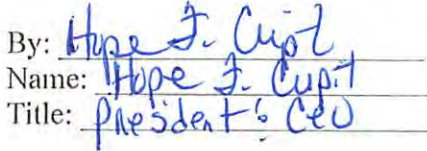 By: Hope F. Cupit
Name: Hope F. Cupit
Title: President & CEO